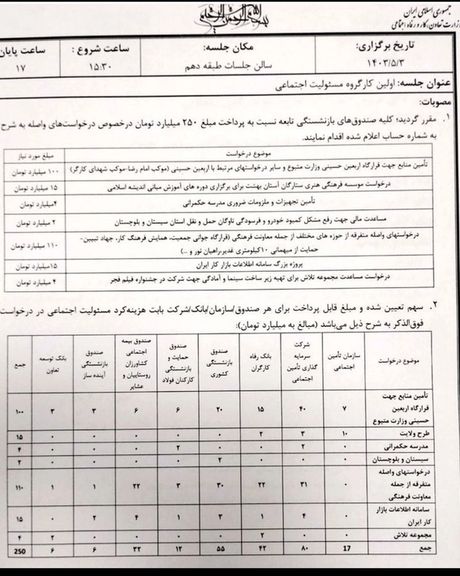 جمهوری اسلامی ایران
وزارت تعاون، کار و رفاه اجتماعی
بسم الله الرحمن الرحیم
تاریخ برگزاری: مکان جلسه: ساعت شروع : ساعت پایان
۱۴۰۳/۵/۳ سالن جلسات طبقه دهم ۱۵:۳۰ ۱۷
عنوان جلسه: اولین کارگروه مسئولیت اجتماعی
مصوبات:
۱. مقرر گردید؛ کلیه صندوق‌های بازنشستگی تابعه نسبت به پرداخت مبلغ ۲۵۰ میلیارد تومان درخصوص درخواست‌های واصله به شرح
به شماره حساب اعلام شده اقدام نمایند.
موضوع درخواست مبلغ مورد نیاز
تأمین منابع جهت قرارگاه اربعین حسینی وزارت متبوع و سایر درخواستهای مرتبط با اربعین حسینی (موکب امام رضا-موکب شهدای کارگر) ۱۰۰ میلیارد تومان
درخواست موسسه فرهنگی هنری ستارگان آستان بهشت برای برگزاری دوره های آموزش مبانی اندیشه اسلامی ۱۵ میلیارد تومان
تأمین تجهیزات و ملزومات ضروری مدرسه حکمرانی ۴میلیارد تومان
مساعدت مالی جهت رفع مشکل کمبود خودرو و فرسودگی ناوگان حمل و نقل استان سیستان و بلوچستان ۲ میلیارد تومان
درخواستهای واصله متفرقه از حوزه های مختلف از جمله معاونت فرهنگی (قرارگاه جوانی جمعیت، همایش فرهنگ کار، جهاد تبیین-
حمایت از میهمانی ۱۰کیلومتری غدیر،راهیان نور و ...) ۱۱۰ میلیارد تومان
پروژه بزرگ سامانه اطلاعات بازار کار ایران ۱۵میلیارد تومان
درخواست مساعدت مجموعه تلاش برای تهیه زیر ساخت سینما و آمادگی جهت شرکت در جشنواره فیلم فجر ۴ میلیارد تومان
۲. سهم تعیین شده و مبلغ قابل پرداخت برای هر صندوق/سازمان/بانک/شرکت بابت هزینه‌کرد مسئولیت اجتماعی در درخواست
فوق‌الذکر به شرح ذیل می‌باشد (مبالغ به میلیارد تومان):
موضوع درخواست سازمان تأمین اجتماعی شرکت سرمایه گذاری تأمین اجتماعی بانک رفاه کارگران صندوق بازنشستگی کشوری صندوق حمایت و بازنشستگی کارکنان فولاد صندوق بیمه اجتماعی کشاورزان روستاییان و عشایر صندوق بازنشستگی آینده ساز بانک توسعه تعاون جمع
تأمین منابع جهت قرارگاه اربعین حسینی وزارت متبوع ۷ ۴۰ ۱۵ ۲۰ ۶ ۶ ۳ ۳ ۱۰۰
طرح ولایت ۱۰ ۳ ۲ ۰ ۰ ۰ ۰ ۰ ۱۵
مدرسه حکمرانی ۰ ۲ ۰ ۰ ۲ ۰ ۰ ۰ ۴
سیستان و بلوچستان ۰ ۰ ۰ ۲ ۰ ۰ ۰ ۰ ۲
درخواستهای واصله متفرقه از جمله معاونت فرهنگی ۰ ۳۱ ۲۲ ۳۰ ۳ ۲۲ ۱ ۱ ۱۱۰
سامانه اطلاعات بازار کار ایران ۰ ۴ ۱ ۳ ۱ ۴ ۲ ۰ ۱۵
مجموعه تلاش ۰ ۰ ۲ ۰ ۰ ۰ ۰ ۲ ۴
جمع 17 ۸۰ ۴۲ ۵۵ ۱۲ ۳۲ ۶ ۶ 250